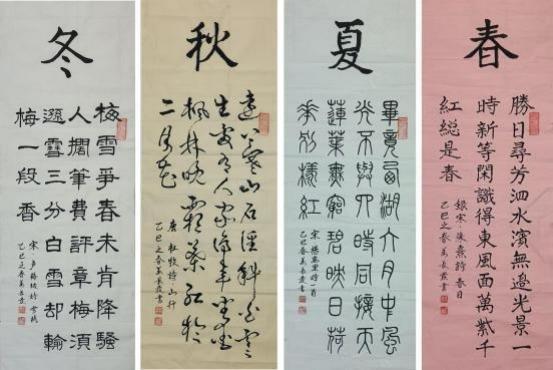 春
勝日尋芳泗水濱無邊光景一
時新等閑識得東風面萬紫千
紅総是春
錄宋·朱熹詩 春日
乙巳之春 書
夏
畢竟西湖六月中風
光不與四時同接天
蓮葉無窮碧映日荷
花別樣紅
宋 楊萬里詩一首
乙巳春 書
秋
遠上寒山石徑斜白雲
生處有人家停車坐愛
楓林晚霜葉紅於
二月花
唐 杜牧詩·山行
乙巳之春 書
冬
梅雪爭春未肯降騷
人擱筆費評章梅須
遜雪三分白雪却輸
梅一段香
宋 卢梅坡詩 雪梅
乙巳之春